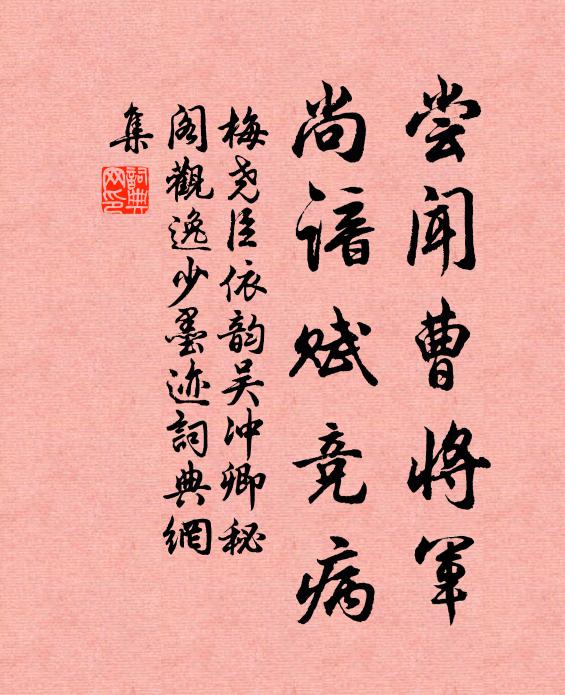 尝闻曹将军
尚谙赋竞病
梅尧臣依韵吴冲卿秘
阁觀逸少墨迹詞典網
集
詞典网印